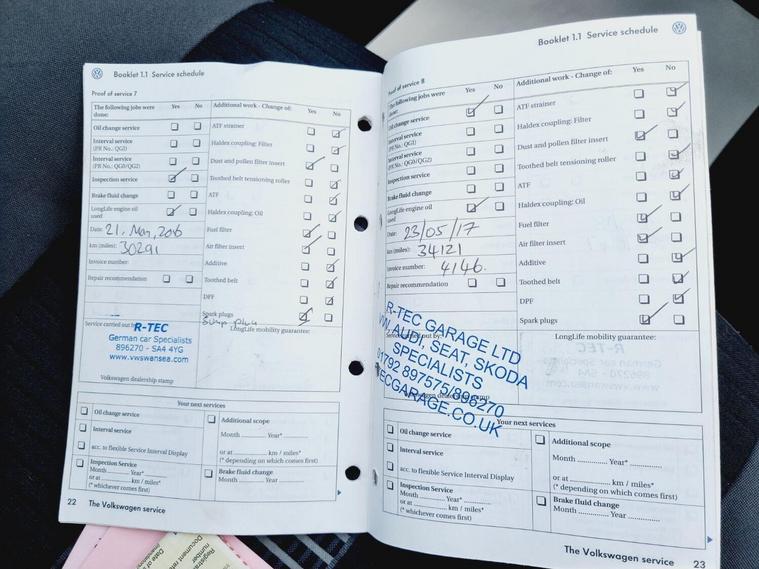 Booklet 1.1 Service schedule
Proof of service 7
The following jobs were done: Yes No
Oil change service
Interval service
(PR No.: QG1)
Interval service
(PR No.: QG0/QG2)
Inspection service
Brake fluid change
LongLife engine oil used
Date: 21. Mar, 2016
km (miles): 30291
Invoice number:
Repair recommendation
Additional work - Change of: Yes No
ATF strainer
Haldex coupling: Filter
Dust and pollen filter insert
Toothed belt tensioning roller
ATF
Haldex coupling: Oil
Fuel filter
Air filter insert
Additive
Toothed belt
DPF
Spark plugs
Sump plug
Service carried out by:
R-TEC
German car Specialists
896270 - SA4 4YG
www.vwswansea.com
Volkswagen dealership stamp
LongLife mobility guarantee:
Your next services
Oil change service
Interval service
acc. to flexible Service Interval Display
Inspection Service
Month ............ Year*............
or at ............ km / miles*
(* whichever comes first)
Additional scope
Month ............ Year*
or at ............ km / miles*
(* depending on which comes first)
Brake fluid change
Month ............ Year ............
22 The Volkswagen service
Booklet 1.1 Service schedule
Proof of service 8
The following jobs were done: Yes No
Oil change service
Interval service
(PR No.: QG1)
Interval service
(PR No.: QG0/QG2)
Inspection service
Brake fluid change
LongLife engine oil used
Date: 23/05/17
km (miles): 34121
Invoice number: 4146.
Repair recommendation
Additional work - Change of: Yes No
ATF strainer
Haldex coupling: Filter
Dust and pollen filter insert
Toothed belt tensioning roller
ATF
Haldex coupling: Oil
Fuel filter
Air filter insert
Additive
Toothed belt
DPF
Spark plugs
LongLife mobility guarantee:
R-TEC GARAGE LTD
VW, AUDI, SEAT, SKODA
SPECIALISTS
01792 897575/896270
TECGARAGE.CO.UK
Your next services
Oil change service
Interval service
acc. to flexible Service Interval Display
Inspection Service
Month ............ Year*............
or at ............ km / miles*
(* whichever comes first)
Additional scope
Month ............ Year* ............
or at ............ km / miles*
(* depending on which comes first)
Brake fluid change
Month ............ Year ............
The Volkswagen service 23